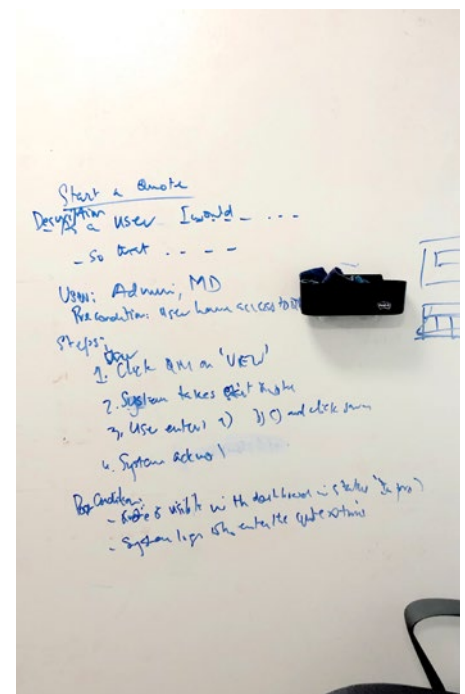 Start a Quote
Description
As a user I would - ...
- So that - - - -
User: Admin, MD
Precondition: user have access to
Steps:
1. Click on 'VIEW'
2. System takes
3. User enters a) b) c) and click
4. System
Post Condition:
- is visible in the dashboard in status
- System logs who enter the quote